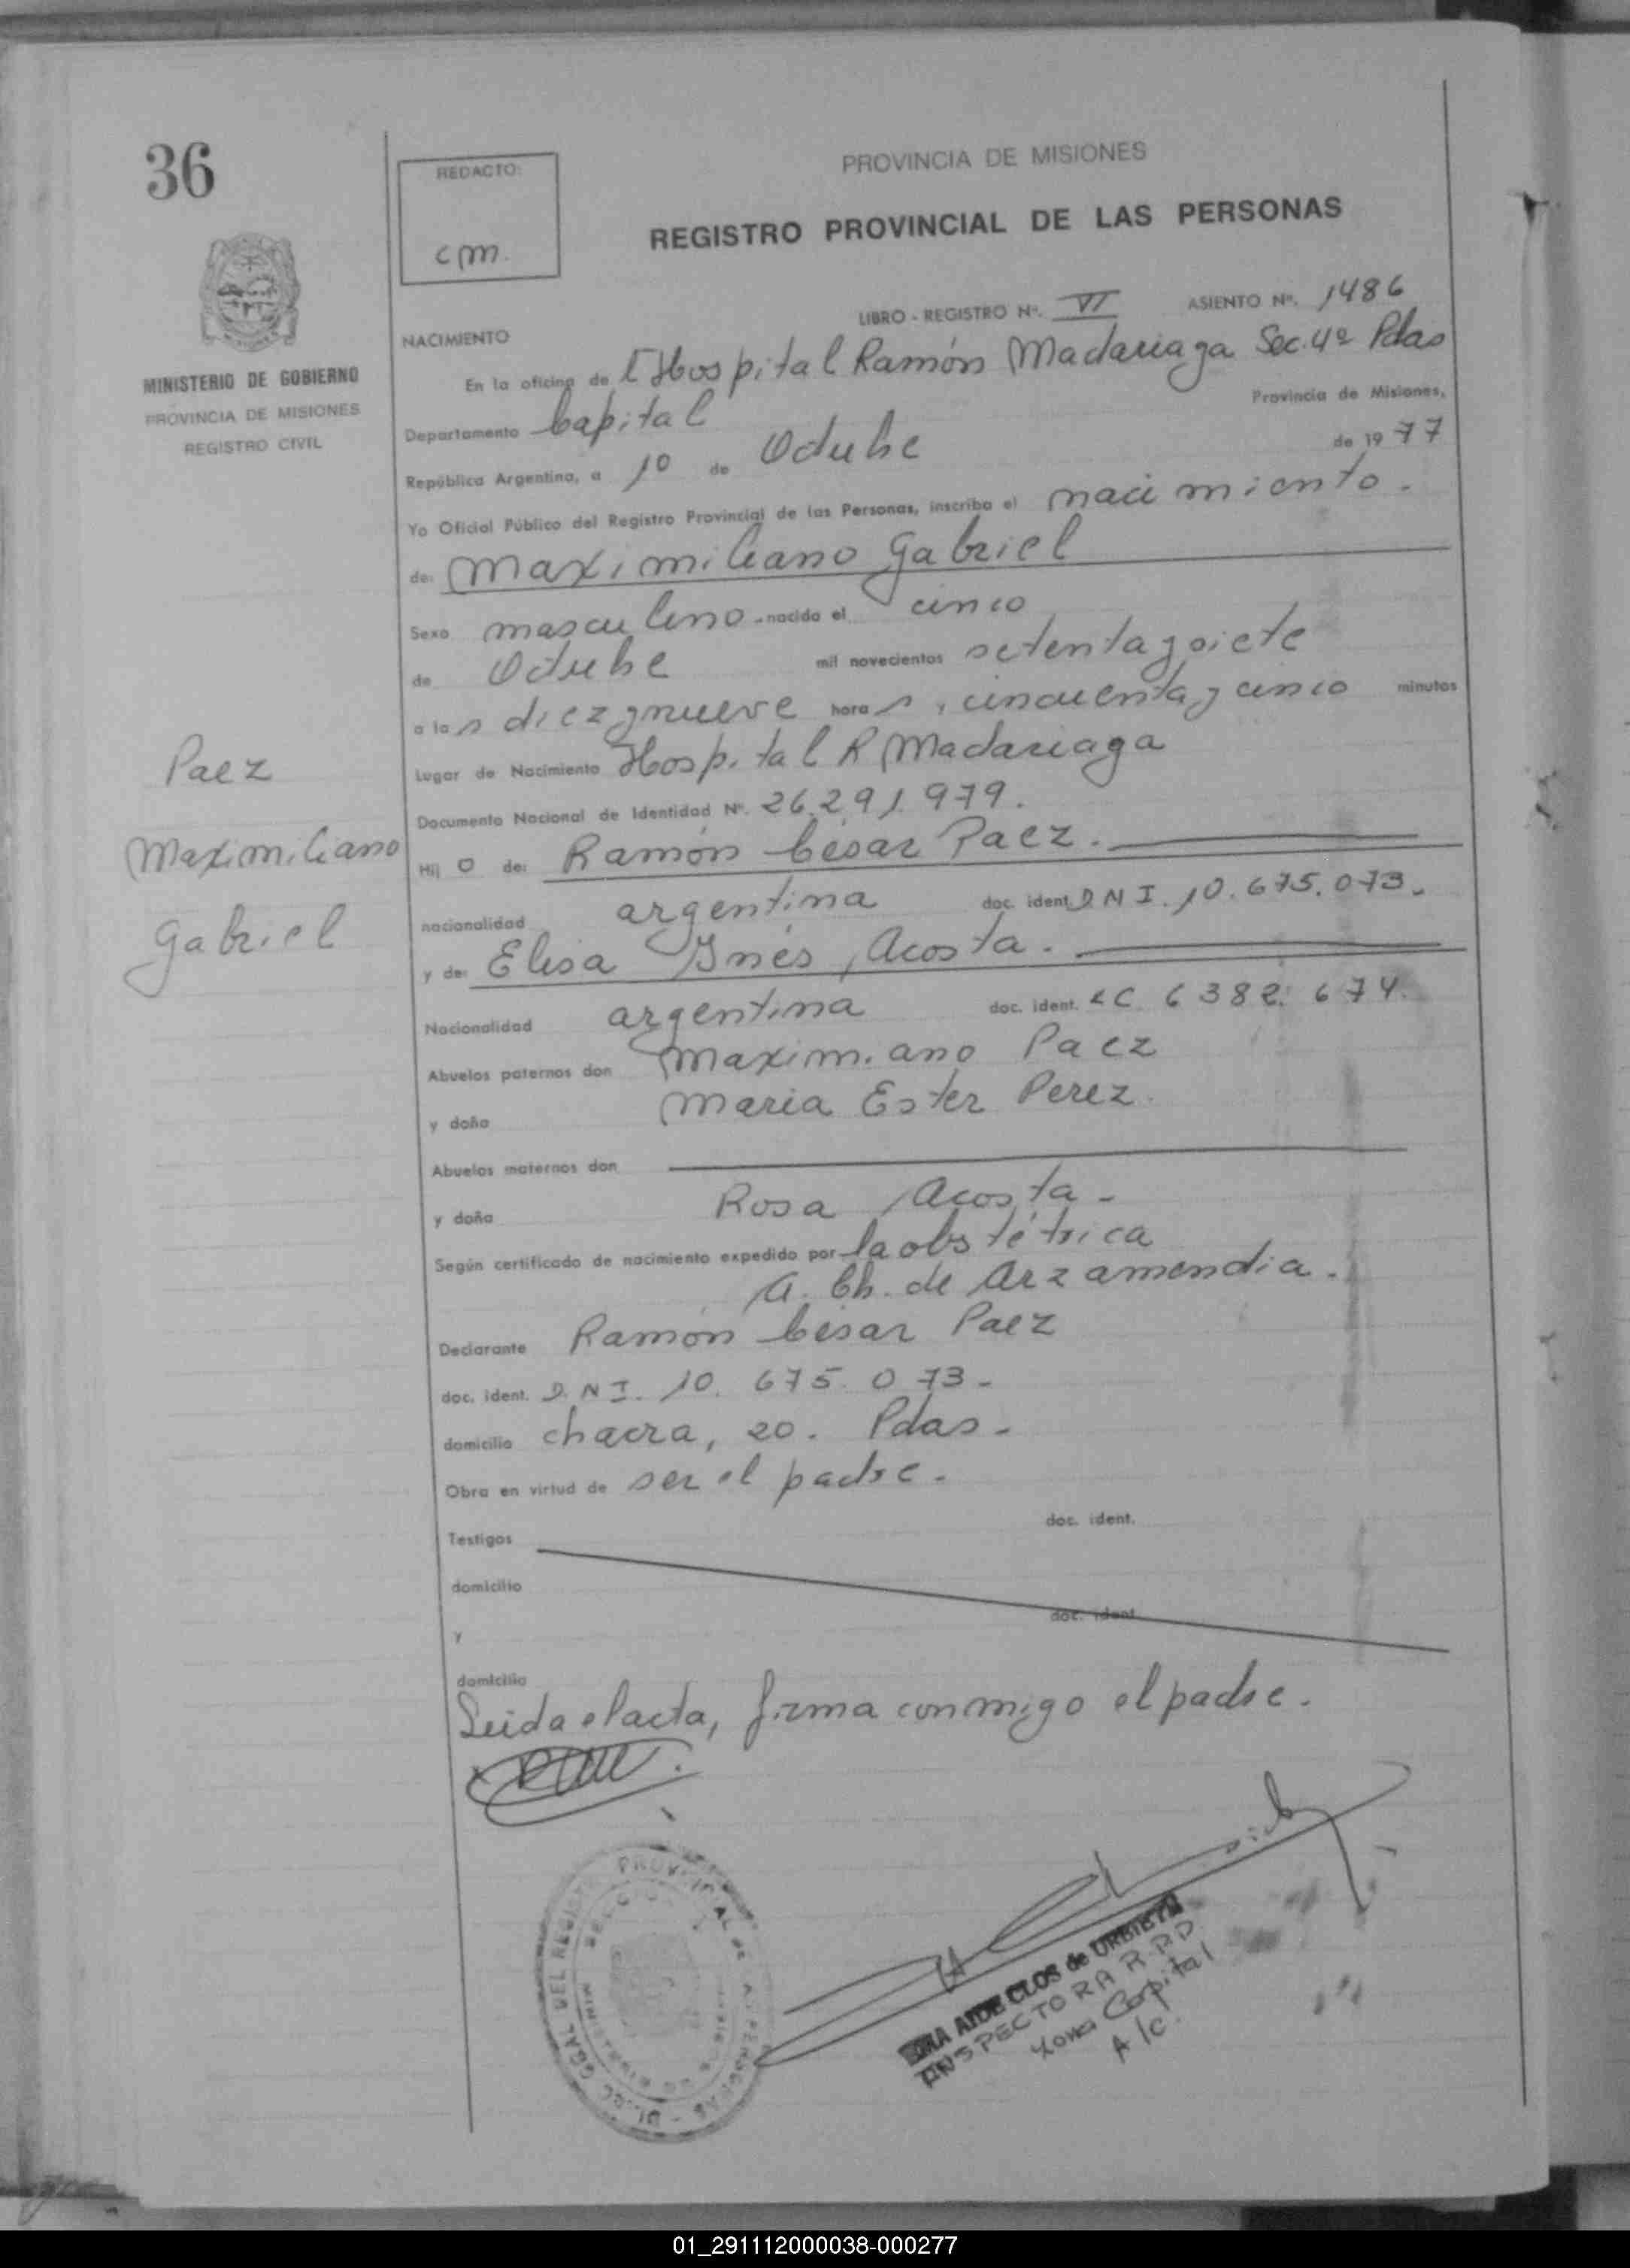 36
REDACTO:
cm.
PROVINCIA DE MISIONES
REGISTRO PROVINCIAL DE LAS PERSONAS
MINISTERIO DE GOBIERNO
PROVINCIA DE MISIONES
REGISTRO CIVIL
LIBRO - REGISTRO Nº. VI ASIENTO Nº. 1486
NACIMIENTO
En la oficina de l Hospital Ramón Madariaga Sec. 4º Pdas
Departamento Capital Provincia de Misiones,
República Argentina, a 10 de Octubre de 1977
Yo Oficial Público del Registro Provincial de las Personas, inscribo el nacimiento.
de: Maximiliano Gabriel
Sexo masculino - nacido el cinco
de Octubre mil novecientos setenta y siete
a las diez y nueve horas y cincuenta y cinco minutos
Lugar de Nacimiento Hospital R Madariaga
Documento Nacional de Identidad Nº. 26.291.979.
Hijo de: Ramón César Paez.
nacionalidad argentina doc. ident. D N I. 10.675.073.
y de: Elisa Ynés Acosta.
Nacionalidad argentina doc. ident. LC 6382.674.
Paez
Maximiliano
Gabriel
Abuelos paternos don Maximiano Paez
y doña Maria Ester Perez.
Abuelos maternos don
y doña Rosa Acosta -
Según certificado de nacimiento expedido por la obstétrica
A. Ch. de Arzamendia.
Declarante Ramón César Paez
doc. ident. D. N I. 10. 675. 073 -
domicilio chacra, 20. Pdas -
Obra en virtud de ser el padre.
doc. ident.
Testigos
domicilio
doc. ident
y
domicilio
Leida el acta, firma conmigo el padre.
AIDE CLOS de URBIETA
INSPECTORA R.P.P
Zona Capital
A/c.
01_291112000038-000277